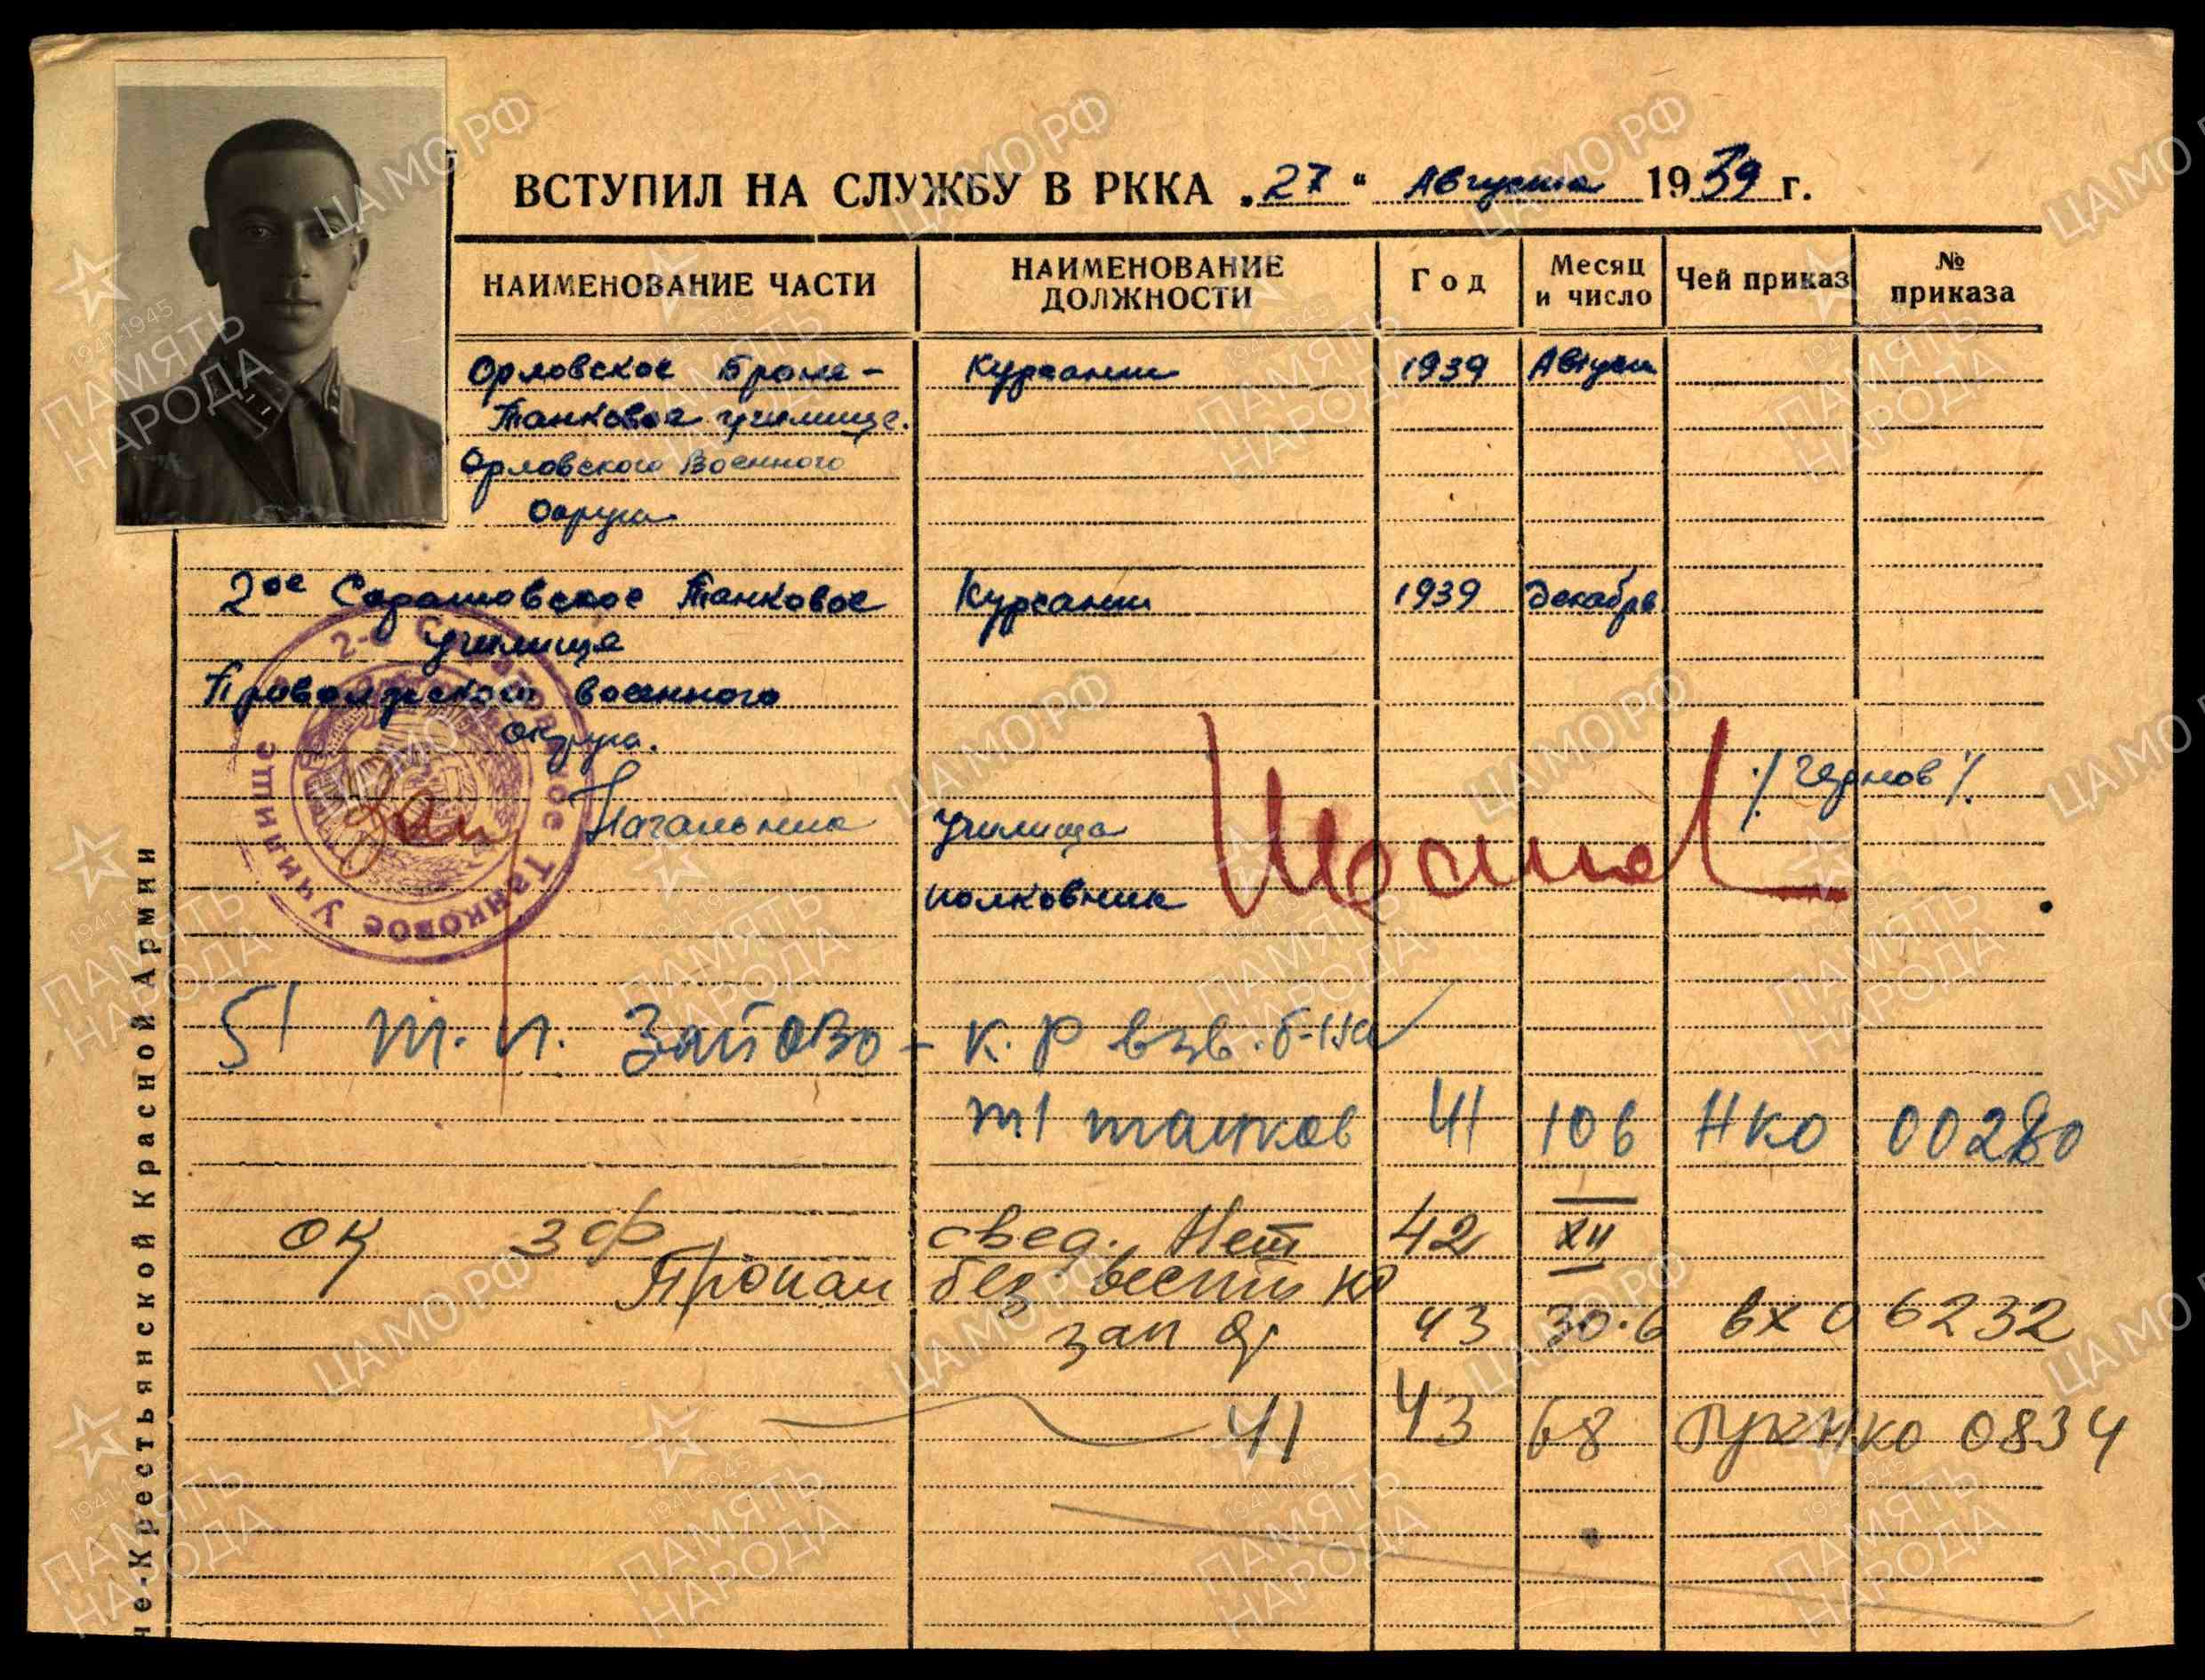 ВСТУПИЛ НА СЛУЖБУ В РККА „27“ Августа 1939 г.
НАИМЕНОВАНИЕ ЧАСТИ
НАИМЕНОВАНИЕ ДОЛЖНОСТИ
Год
Месяц и число
Чей приказ
№ приказа
Орловское Броне- Курсант 1939 Август
Танковое училище.
Орловского Военного
Округа
2ое Саратовское Танковое Курсант 1939 Декабрь
училище
Приволжского военного
округа.
Начальник училища /Чернов/.
полковник
2-е Саратовское Танковое Училище
51 т.п. ЗапОВО - к-р взв. б-на
т/танков 41 10 6 НКО 00280
ОК ЗФ свед. Нет 42 XII
Пропал без вести
43 30.6 вх 06232
41 43 6 8 ГУК НКО 0834
че-Крестьянской Красной Армии
ЦАМО.РФ
ПАМЯТЬ НАРОДА
1941-1945